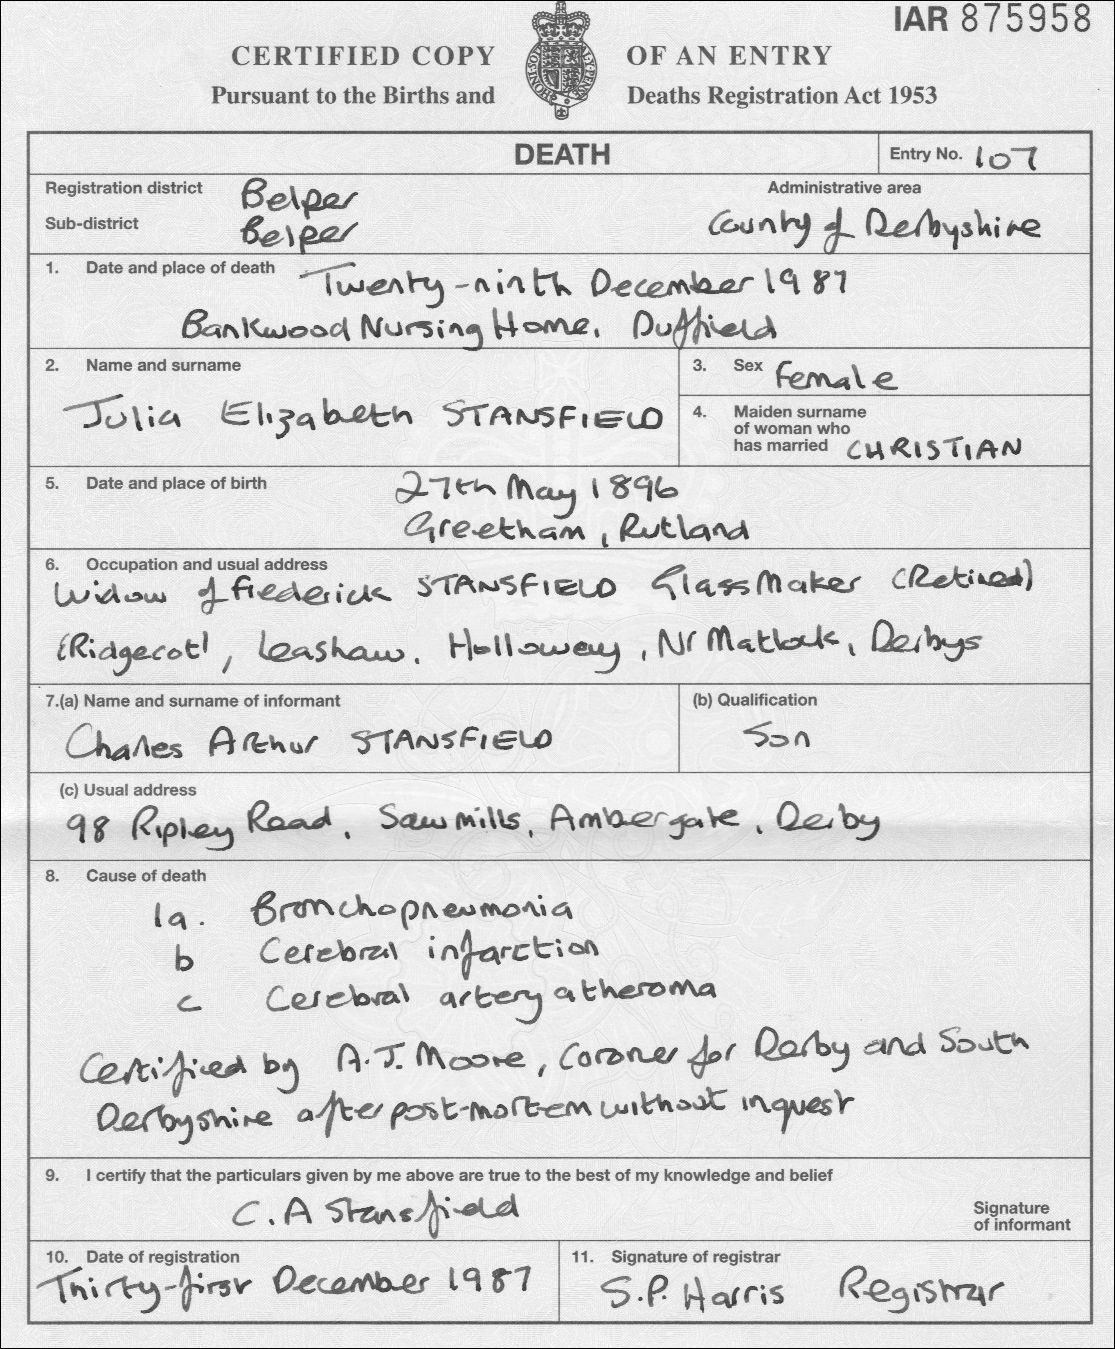 IAR 875958
CERTIFIED COPY OF AN ENTRY
Pursuant to the Births and Deaths Registration Act 1953
DEATH
Entry No. 107
Registration district Belper
Administrative area
Sub-district Belper
County of Derbyshire
1. Date and place of death Twenty-ninth December 1987
Bankwood Nursing Home, Duffield
2. Name and surname
Julia Elizabeth STANSFIELD
3. Sex Female
4. Maiden surname
of woman who
has married CHRISTIAN
5. Date and place of birth 27th May 1896
Greetham, Rutland
6. Occupation and usual address
Widow of Frederick STANSFIELD Glass Maker (Retired)
Leashaw, Holloway, Nr Matlock, Derbys
7.(a) Name and surname of informant
Charles Arthur STANSFIELD
(b) Qualification
Son
(c) Usual address
98 Ripley Road, Sawmills, Ambergate, Derby
8. Cause of death
1a. Bronchopneumonia
b Cerebral infarction
c Cerebral artery atheroma
Certified by A.J. Moore, Coroner for Derby and South
Derbyshire after post-mortem without inquest
9. I certify that the particulars given by me above are true to the best of my knowledge and belief
C.A Stansfield
Signature
of informant
10. Date of registration
Thirty-first December 1987
11. Signature of registrar
S.P. Harris Registrar